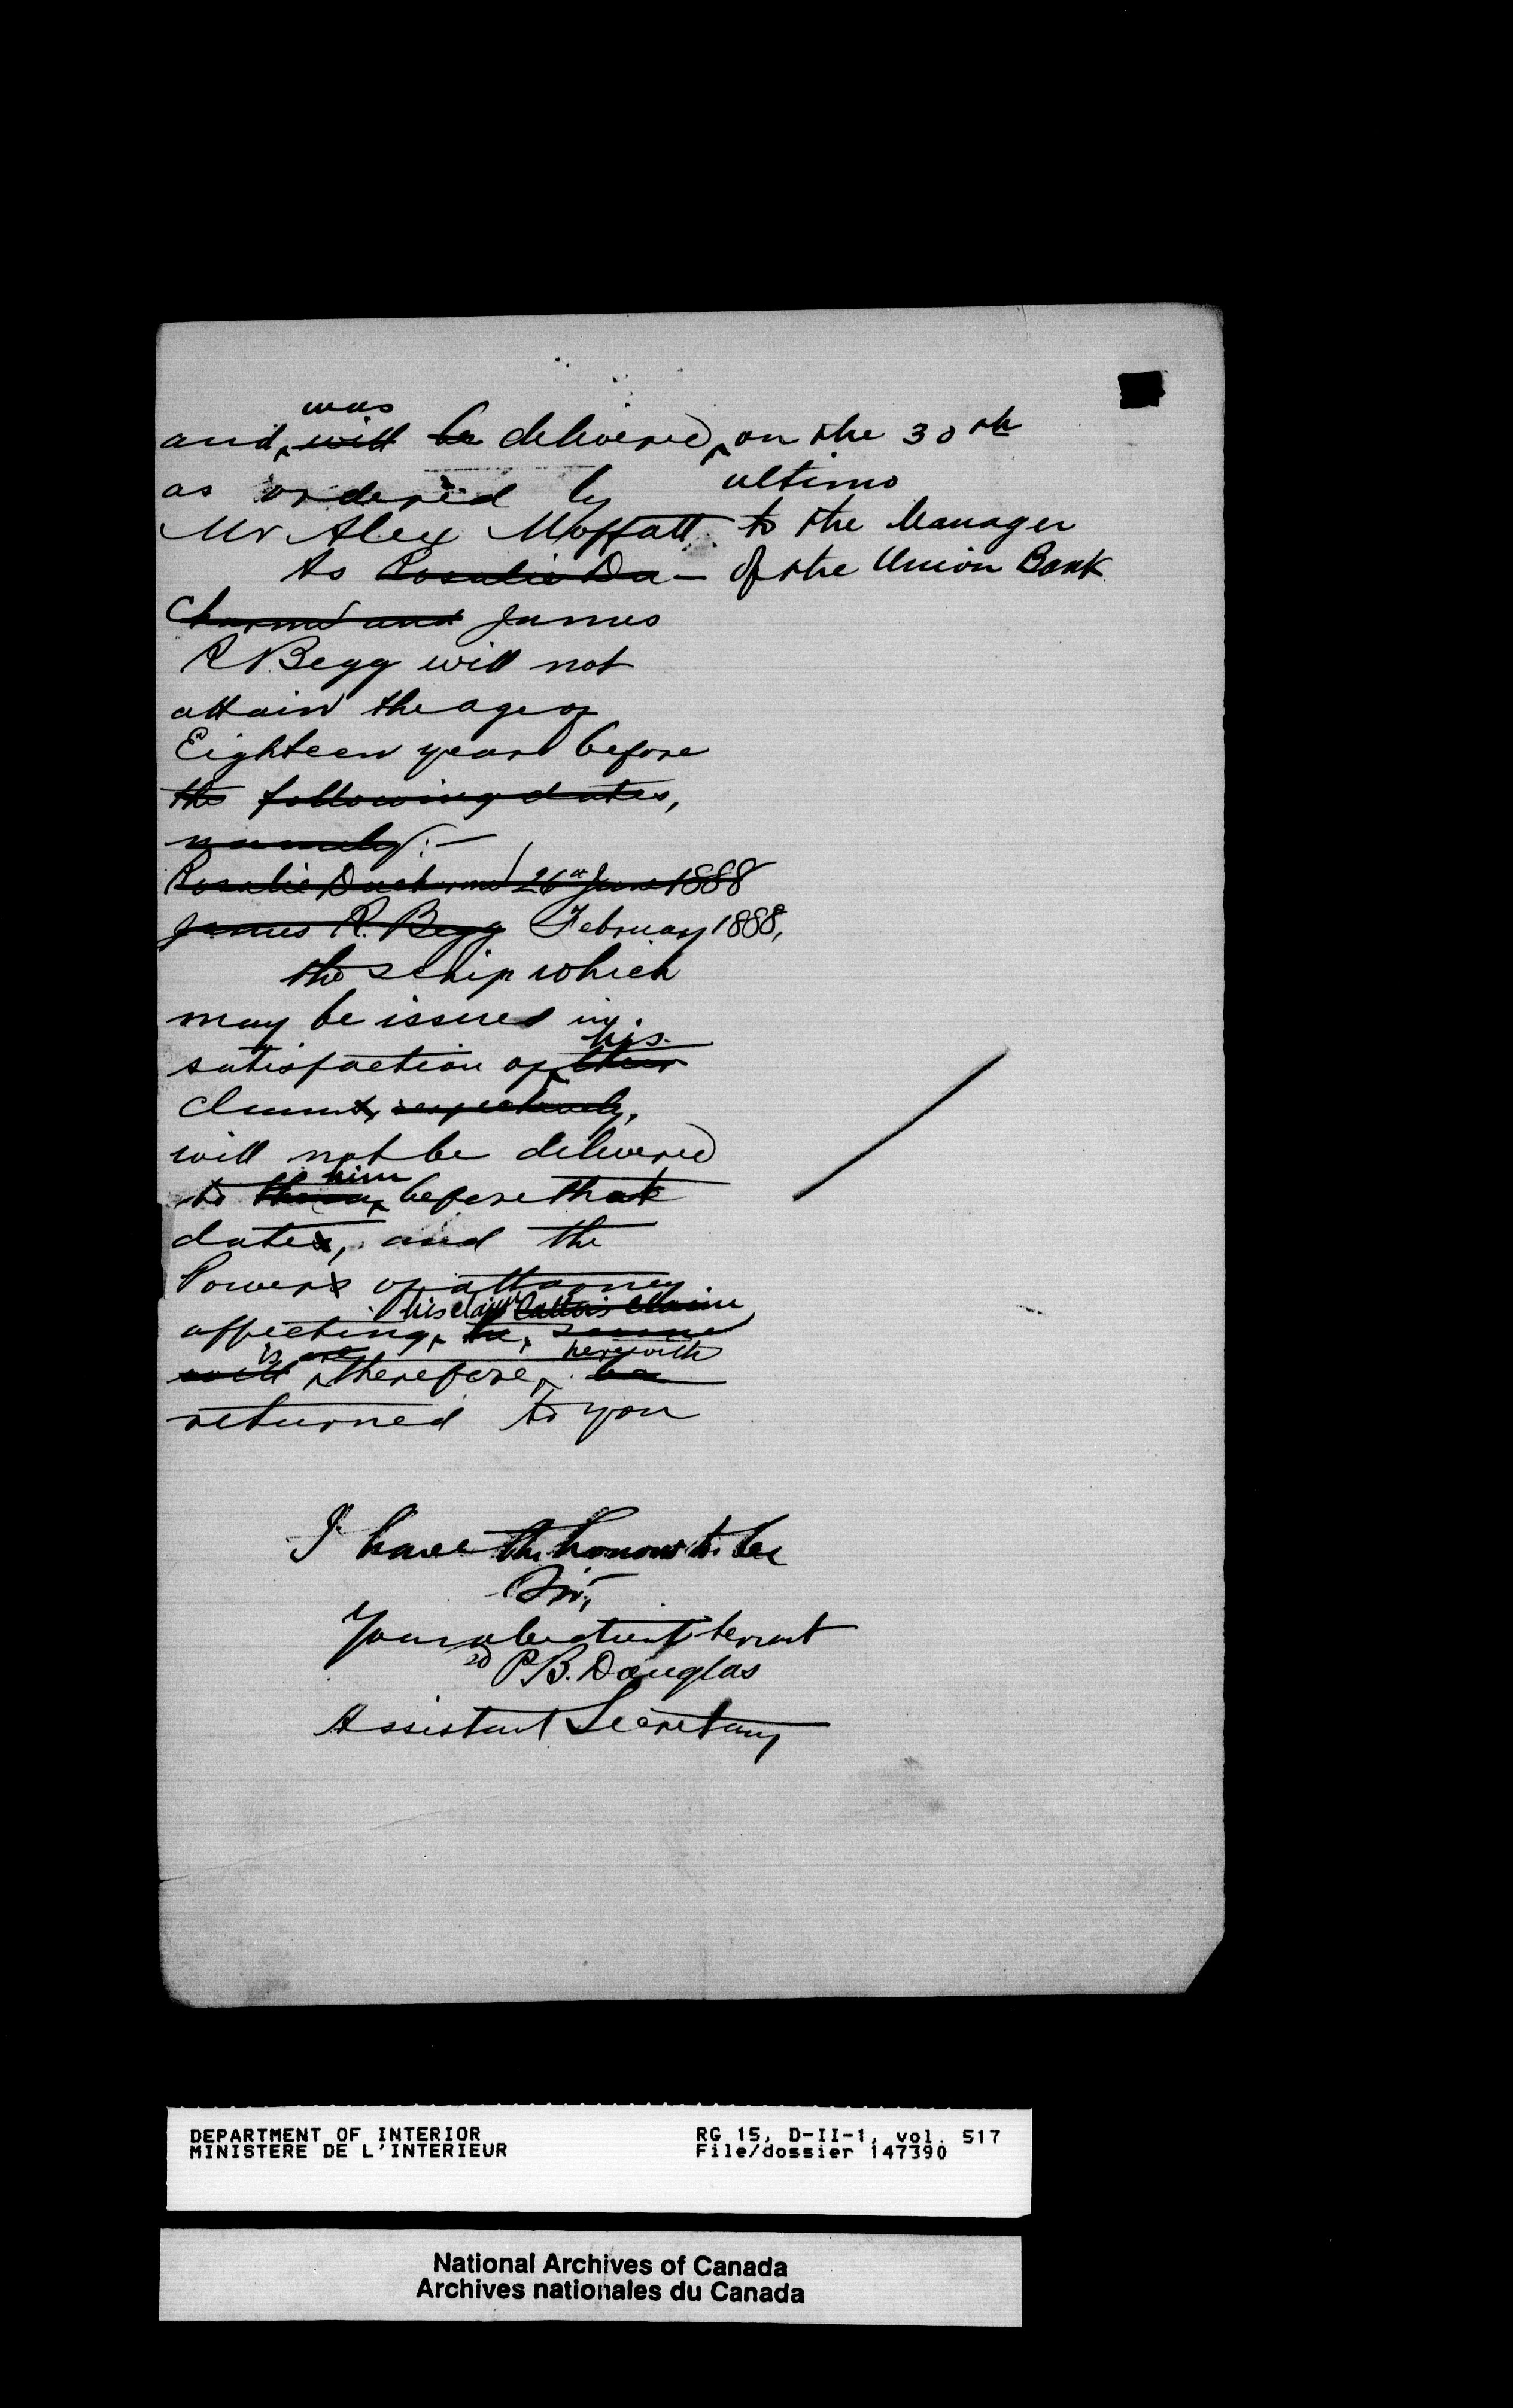 was
and, will be delivered, on the 30th
as ordered by ultimo
Mr Alex Moffatt to the Manager
As Rosalie Du- of the Union Bank
Charme and James
R Begg will not
attain the age of
Eighteen years before
the following dates,
namely:-
Rosalie Ducharme 26th June 1888
James R. Begg February 1888,
the scrip which
may be issued in
his
satisfaction of their
claims, respectively,
will not be delivered
him
to them, before that
dates, and the
Powers of attorney
his claim latter's claim
affecting, the, same
is are herewith
will therefore, be
returned to you
I have the honour to be
Sir,
Your obedient servant
P.B. Douglas
Assistant Secretary
DEPARTMENT OF INTERIOR RG 15, D-II-1, vol. 517
MINISTERE DE L'INTERIEUR File/dossier 147390
National Archives of Canada
Archives nationales du Canada